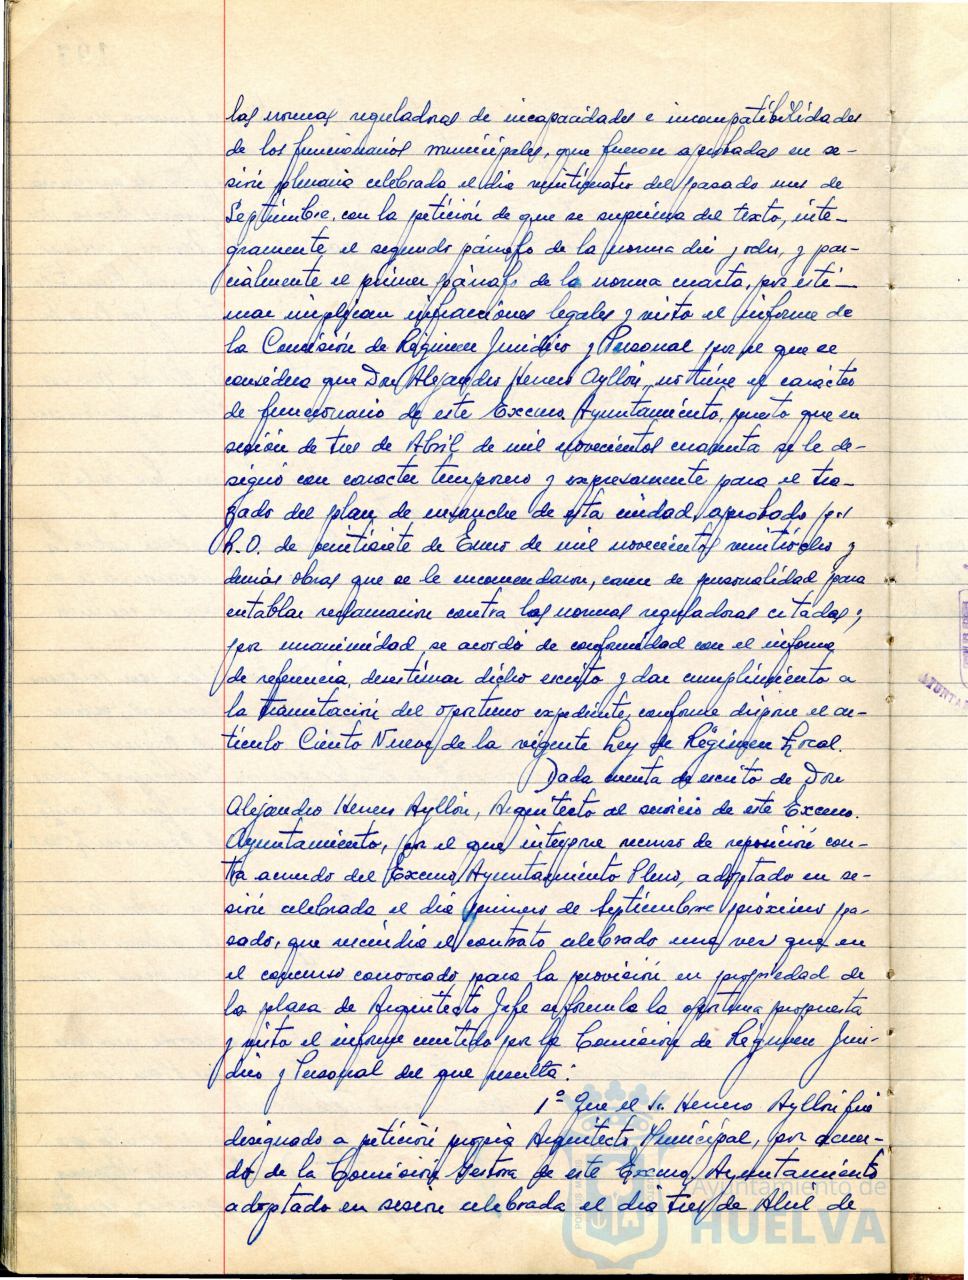 las normas reguladoras de incapacidades e incompatibilidades
de los funcionarios municipales, que fueron aprobadas en se-
sión plenaria celebrada el dia veinticuatro del pasado mes de
Septiembre, con la petición de que se suprima del texto, inte-
gramente, el segundo párrafo de la norma diez y ocho, y par-
cialmente el primer párrafo de la norma cuarta, por esti-
mar implican infracciones legales y visto el informe de
la Comisión de Régimen Jurídico y Personal por el que se
considera que Don Alejandro Herrero Ayllón, no tiene el carácter
de funcionario de este Excmo. Ayuntamiento, puesto que en
sesión de tres de Abril de mil novecientos cuarenta se le de-
signó con caracter temporero y expresamente para el tra-
zado del plan de ensanche de esta ciudad, aprobado por
R.O. de veintisiete de Enero de mil novecientos veintiocho y
demás obras que se le encomendaron, carece de personalidad para
entablar reclamación contra las normas reguladoras citadas;
por unanimidad, se acordó de conformidad con el informe
de referencia, desestimar dicho escrito y dar cumplimiento a
la tramitación del oportuno expediente, conforme dispone el ar-
tículo Ciento Nueve de la vigente Ley de Régimen Local.
Dada cuenta de escrito de Don
Alejandro Herrero Ayllón, Arquitecto al servicio de este Excmo.
Ayuntamiento, por el que interpone recurso de reposición con-
tra acuerdo del Excmo. Ayuntamiento Pleno, adoptado en se-
sión celebrada el dia primero de Septiembre próximo pa-
sado, que rescindia el contrato celebrado una vez que en
el concurso convocado para la provisión en propiedad de
la plaza de Arquitecto Jefe se formula la oportuna propuesta
y visto el informe emitido por la Comisión de Régimen Jurí-
dico y Personal del que resulta:
1º Que el Sr. Herrero Ayllón fué
designado a petición propia Arquitecto Municipal, por acuer-
do de la Comisión Gestora de este Excmo. Ayuntamiento
adoptado en sesión celebrada el dia tres de Abril de
Ayuntamiento de
HUELVA